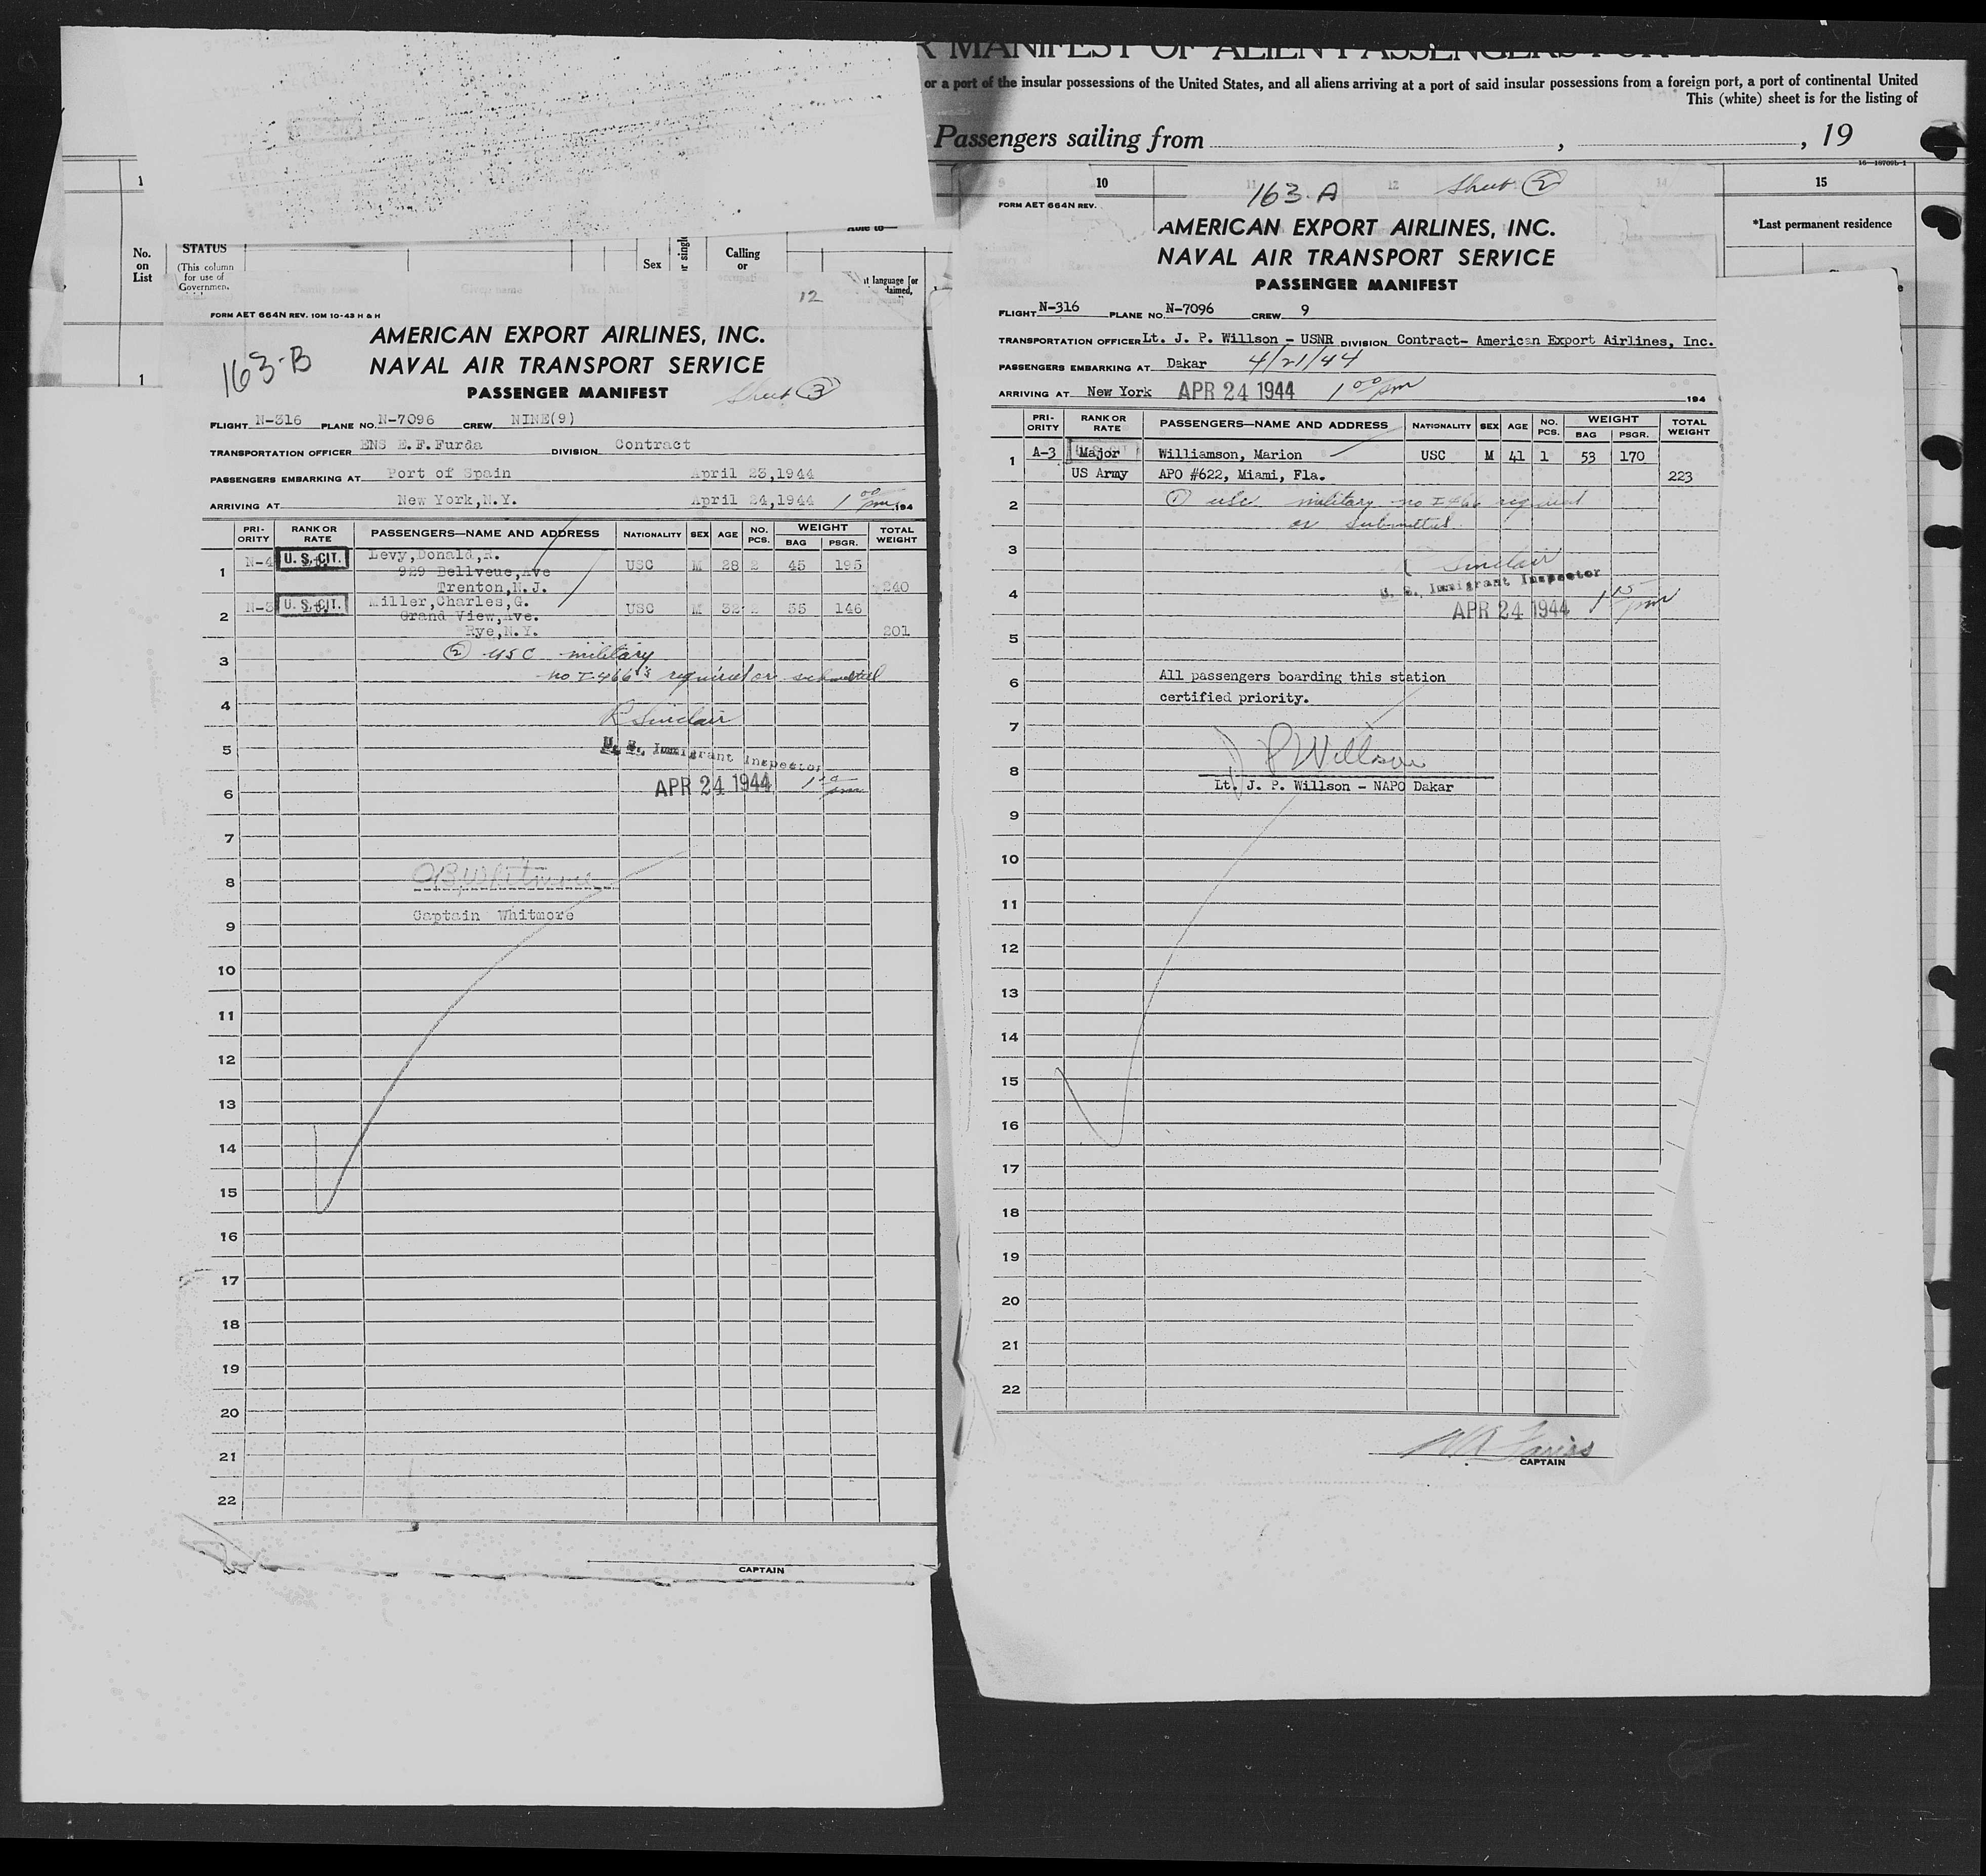 R MANIFEST OF ALIEN PASSENGERS FOR
or a port of the insular possessions of the United States, and all aliens arriving at a port of said insular possessions from a foreign port, a port of continental United
This (white) sheet is for the listing of
Passengers sailing from , , 19
16—16709b-1
1
No.
on
List
STATUS
(This column
for use of
Sex
Calling
or
language [or
12
1
FORM AET 664N REV. 10M 10-43 H & H
AMERICAN EXPORT AIRLINES, INC.
NAVAL AIR TRANSPORT SERVICE
PASSENGER MANIFEST
163-B
Sheet 3
FLIGHT N-316 PLANE NO. N-7096 CREW NINE(9)
TRANSPORTATION OFFICER ENS E.F.Furda DIVISION Contract
PASSENGERS EMBARKING AT Port of Spain April 23,1944
ARRIVING AT New York,N.Y. April 24,1944 1 00 pm 194
PRI-ORITY RANK OR RATE PASSENGERS—NAME AND ADDRESS NATIONALITY SEX AGE NO. PCS. WEIGHT BAG PSGR. TOTAL WEIGHT
1 N-4 U. S. CIT. Levy,Donald,R. USC M 28 2 45 195
929 Bellveue,Ave
Trenton,N.J. 240
2 N-3 U. S. CIT. Miller,Charles,G. USC M 32 2 55 146
Grand View,Ave.
Rye,N.Y. 201
3 2 USC military
no I-466's required or submitted
4 R Sinclair
5 U. S. Immigrant Inspector
6 APR 24 1944
7
8
Captain Whitmore
9
10
11
12
13
14
15
16
17
18
19
20
21
22
CAPTAIN
9 10 11 12 14 15
*Last permanent residence
163-A
Sheet 2
FORM AET 664N REV.
AMERICAN EXPORT AIRLINES, INC.
NAVAL AIR TRANSPORT SERVICE
PASSENGER MANIFEST
FLIGHT N-316 PLANE NO. N-7096 CREW 9
TRANSPORTATION OFFICER Lt. J. P. Willson - USNR DIVISION Contract- American Export Airlines, Inc.
PASSENGERS EMBARKING AT Dakar 4/21/44
ARRIVING AT New York APR 24 1944 1 00 pm 194
PRI-ORITY RANK OR RATE PASSENGERS—NAME AND ADDRESS NATIONALITY SEX AGE NO. PCS. WEIGHT BAG PSGR. TOTAL WEIGHT
1 A-3 Major Williamson, Marion USC M 41 1 53 170
US Army APO #622, Miami, Fla. 223
2 1 usc military no I-466 required
or submitted
3 R Sinclair
U. S. Immigrant Inspector
4 APR 24 1944 1 15 pm
5
6 All passengers boarding this station
certified priority.
7
J P Willson
8
Lt. J. P. Willson - NAPO Dakar
9
10
11
12
13
14
15
16
17
18
19
20
21
22
CAPTAIN